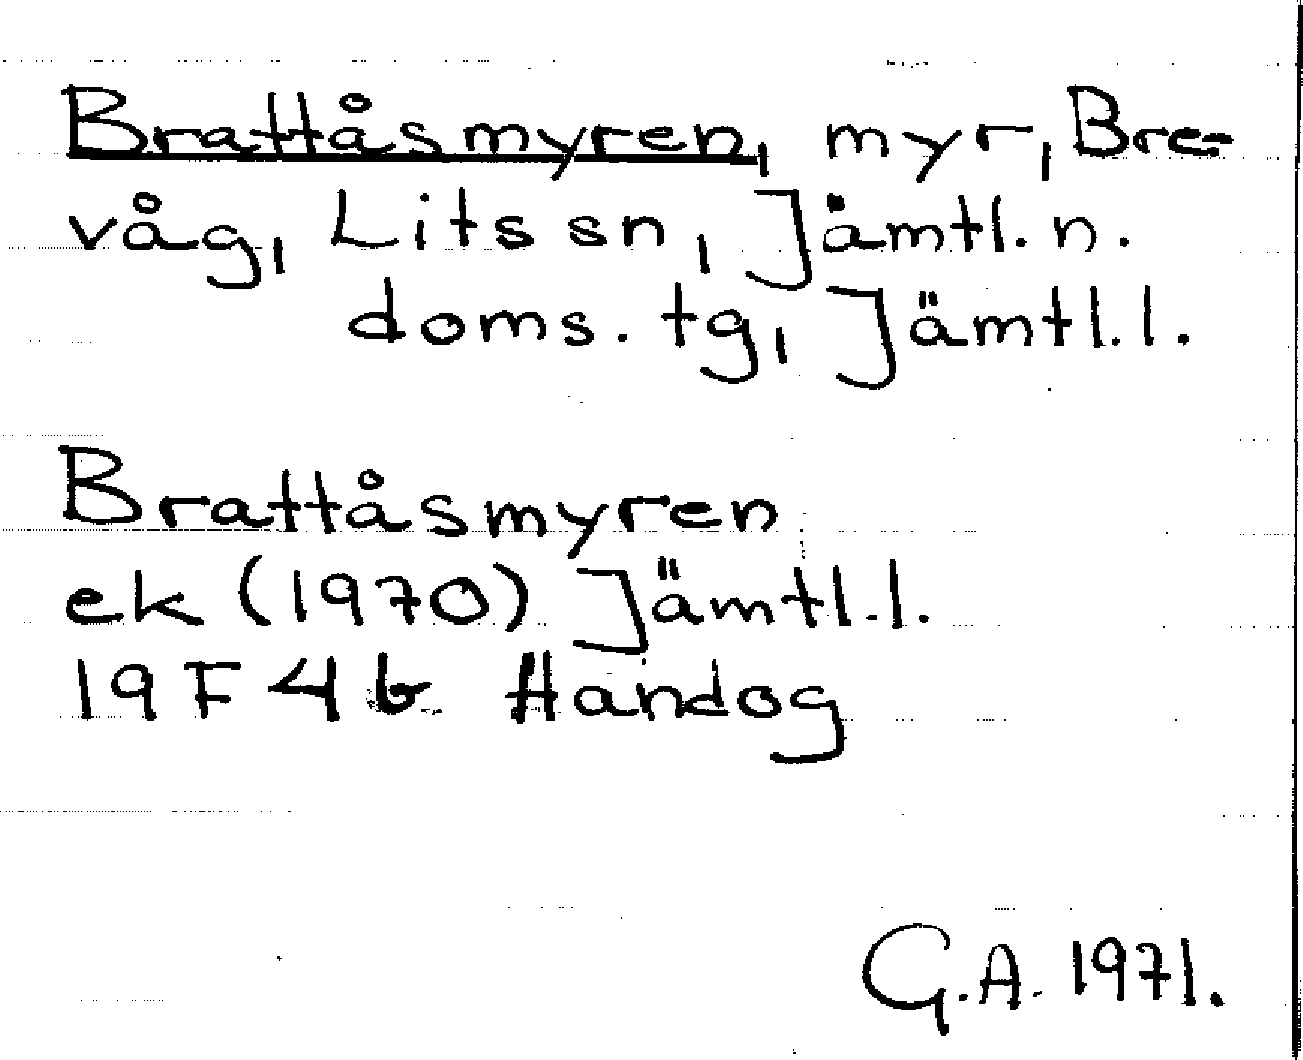 Brattåsmyren, myr, Bre-
våg, Lits sn, Jämtl. n.
doms. tg, Jämtl. l.
Brattåsmyren
ek (1970) Jämtl. l.
19 F 4 b Handog
G. A. 1971.